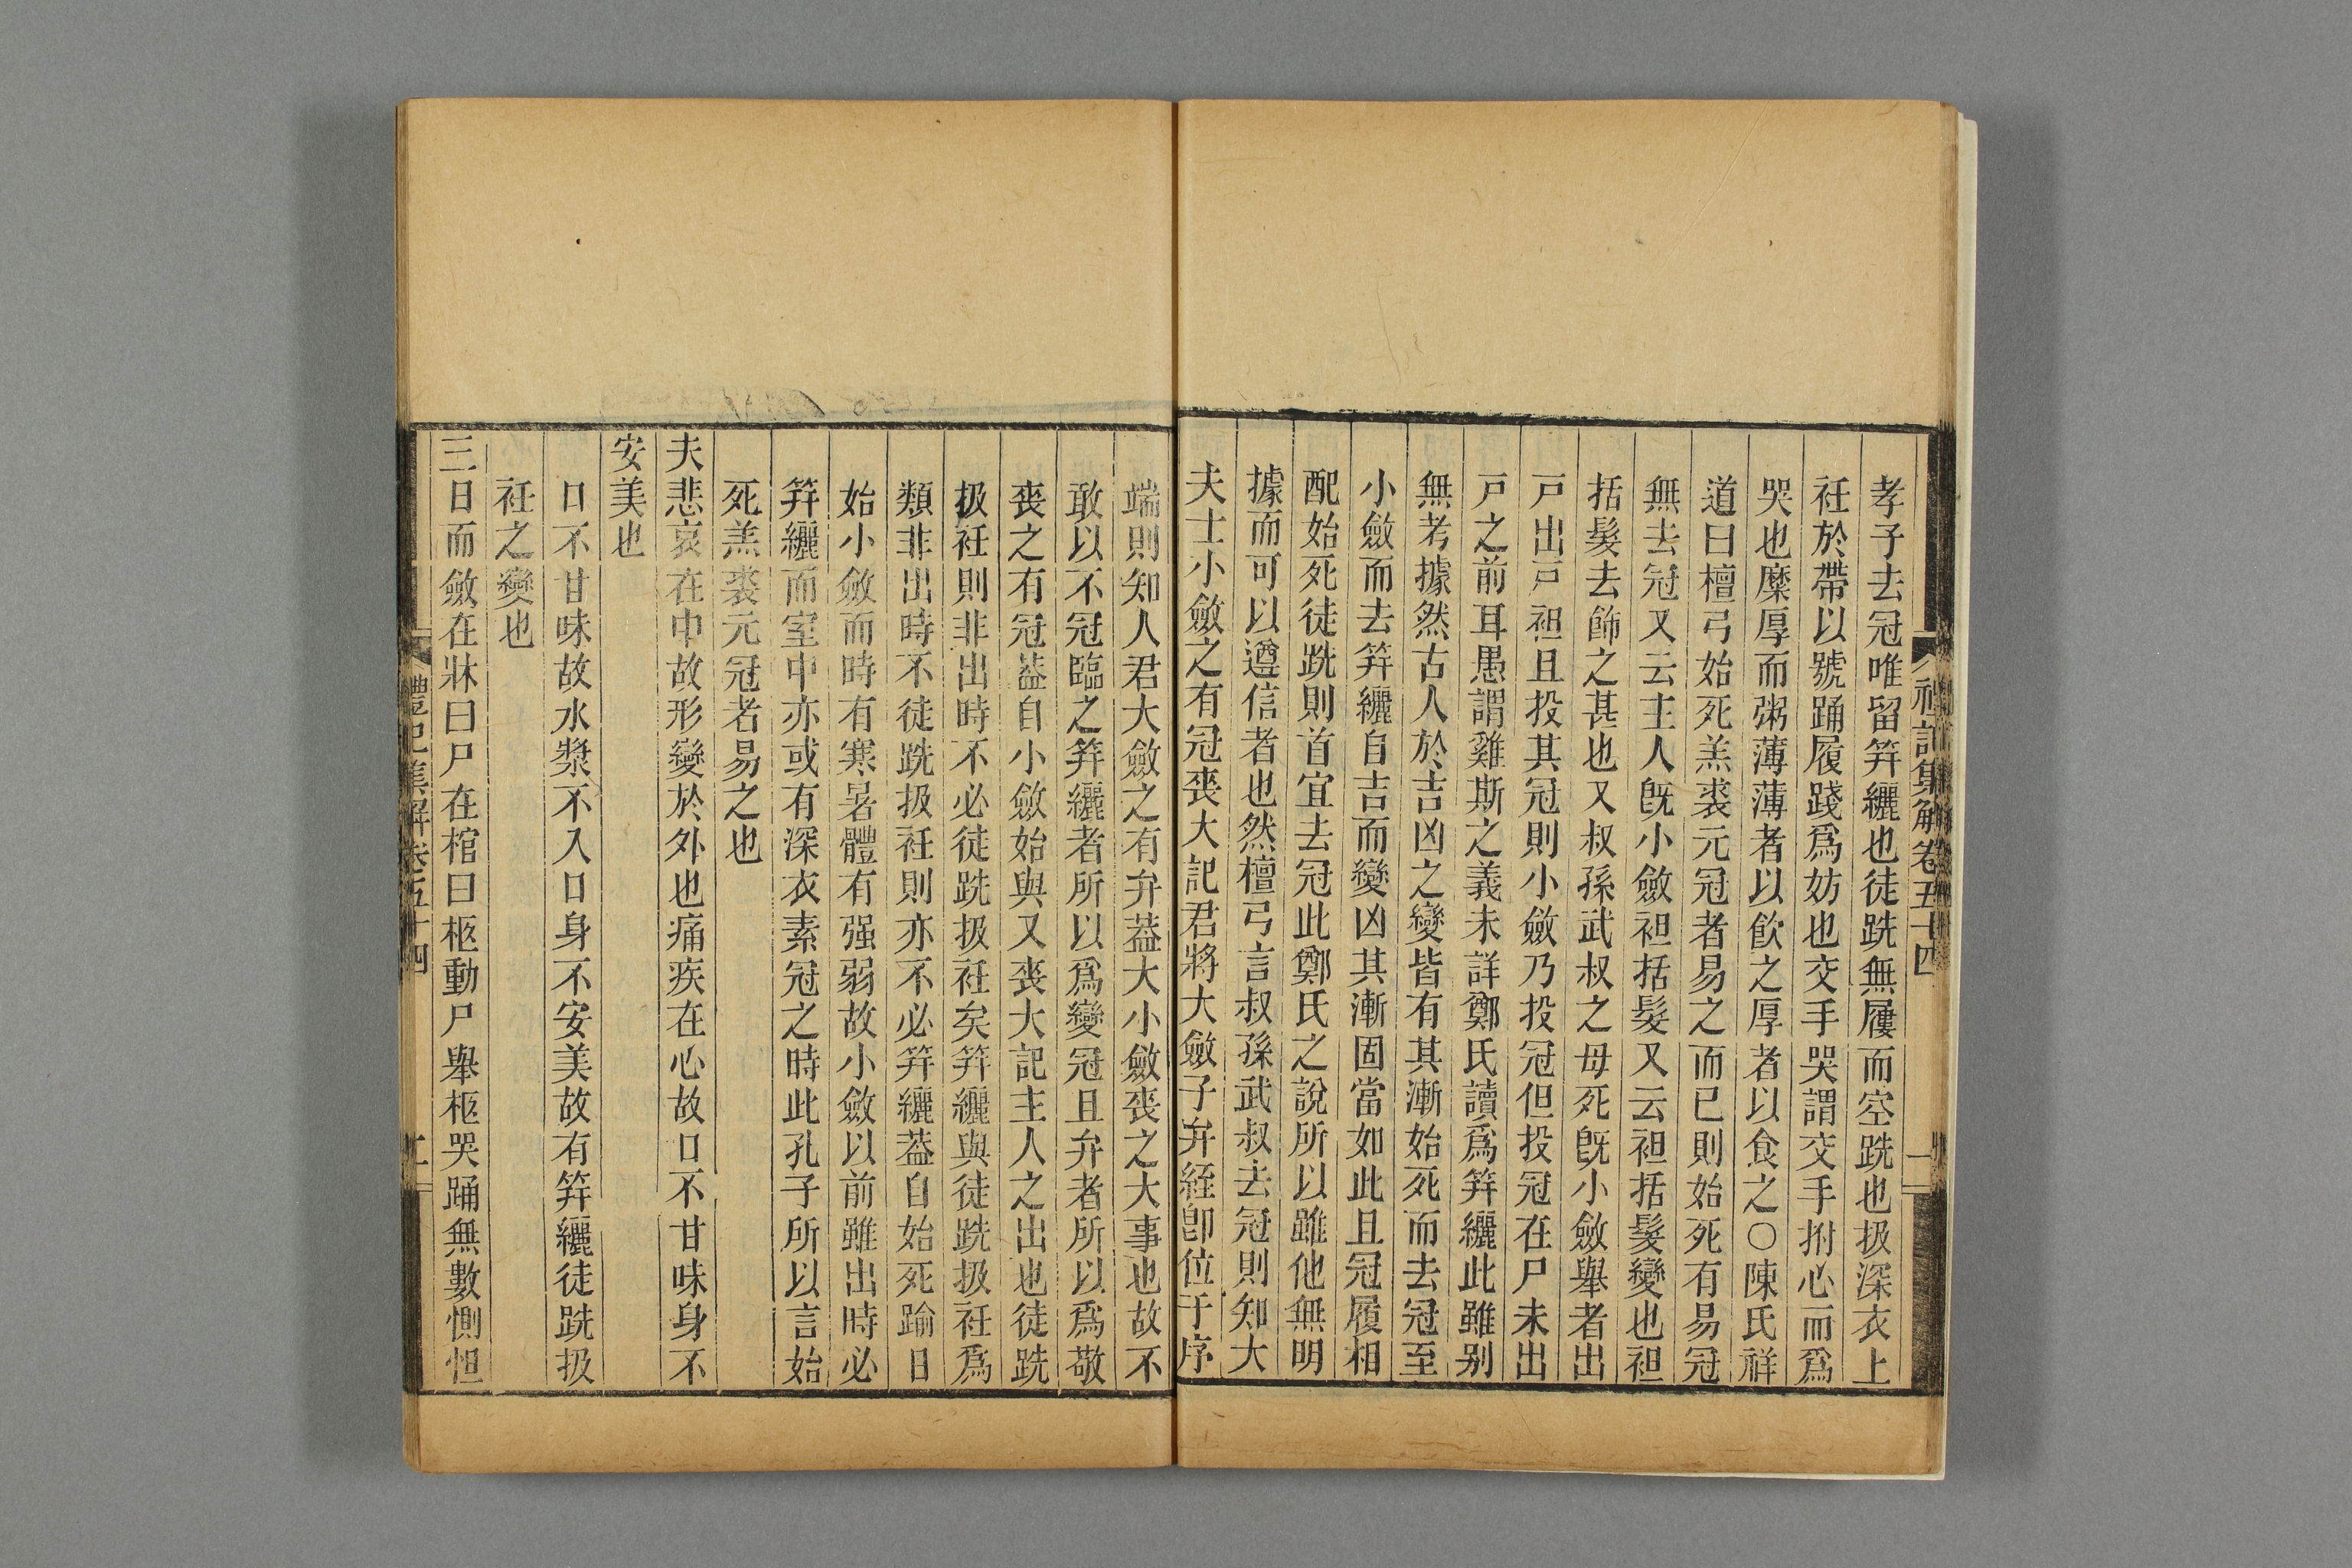 禮記集解卷五十四
一
孝子去冠唯留笄纚也徒跣無屨而空跣也扱深衣上
衽於帶以號踊履踐爲妨也交手哭謂交手拊心而爲
哭也糜厚而粥薄薄者以飲之厚者以食之○陳氏祥
道曰檀弓始死羔裘元冠者易之而已則始死有易冠
無去冠又云主人旣小斂袒括髮又云袒括髮變也袒
括髮去飾之甚也又叔孫武叔之母死旣小斂舉者出
戸出戸袒且投其冠則小斂乃投冠但投冠在尸未出
戸之前耳愚謂雞斯之義未詳鄭氏讀爲笄纚此雖別
無考據然古人於吉凶之變皆有其漸始死而去冠至
小斂而去笄纚自吉而變凶其漸固當如此且冠履相
配始死徒跣則首宜去冠此鄭氏之說所以雖他無明
據而可以遵信者也然檀弓言叔孫武叔去冠則知大
夫士小斂之有冠喪大記君將大斂子弁絰卽位于序
端則知人君大斂之有弁蓋大小斂喪之大事也故不
敢以不冠臨之笄纚者所以爲變冠且弁者所以爲敬
喪之有冠蓋自小斂始與又喪大記主人之出也徒跣
扱衽則非出時不必徒跣扱衽矣笄纚與徒跣扱衽爲
類非出時不徒跣扱衽則亦不必笄纚蓋自始死踰日
始小斂而時有寒暑體有强弱故小斂以前雖出時必
笄纚而室中亦或有深衣素冠之時此孔子所以言始
死羔裘元冠者易之也
夫悲哀在中故形變於外也痛疾在心故口不甘味身不
安美也
口不甘味故水漿不入口身不安美故有笄纚徒跣扱
衽之變也
三日而斂在牀曰尸在棺曰柩動尸舉柩哭踊無數惻怛
禮記集解卷五十四
二